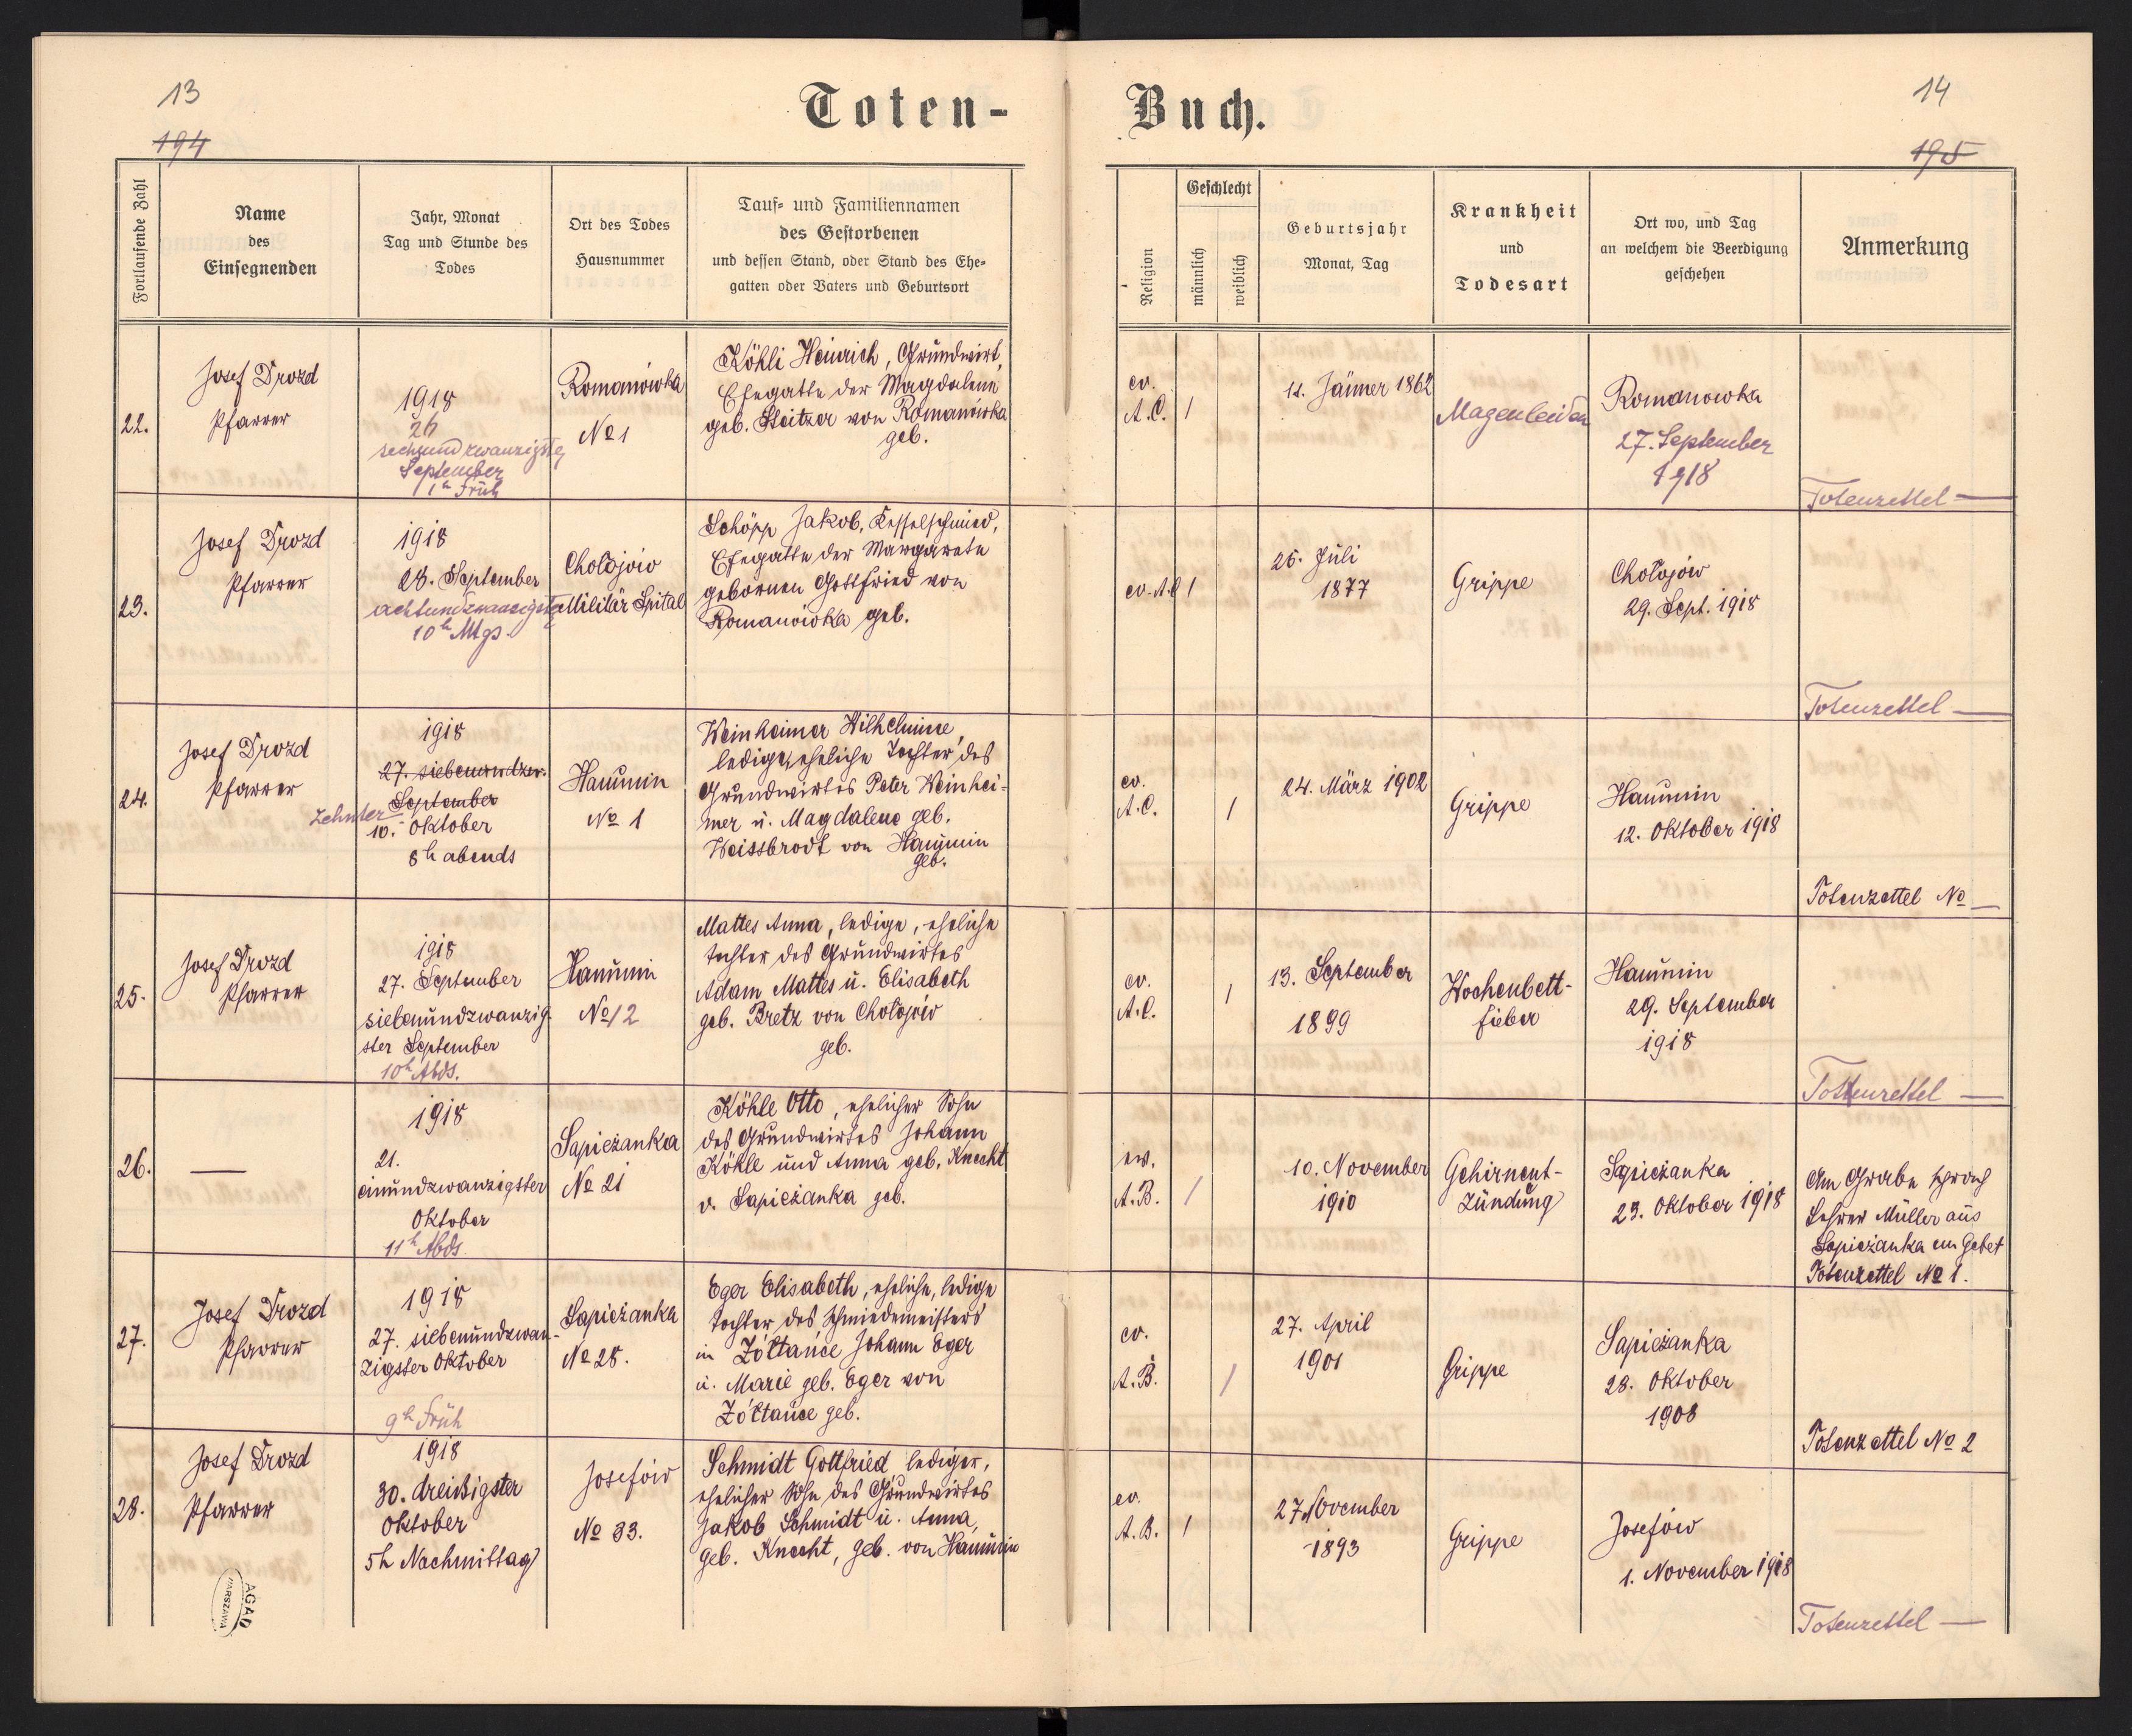 13
194
Toten-
Fortlaufende Zahl
Name
des
Einsegnenden
Jahr, Monat
Tag und Stunde des
Todes
Ort des Todes
Hausnummer
Tauf- und Familiennamen
des Gestorbenen
und dessen Stand, oder Stand des Ehe-
gatten oder Vaters und Geburtsort
22.
Josef Drozd
Pfarrer
1918
26
sechsundzwanzigste
September
1h Früh
Romanówka
No 1
Köhli Heinrich, Grundwirt,
Ehegatte der Magdalene
geb. von Romanówka
geb.
23.
Josef Drozd
Pfarrer
1918
28. September
achtundzwanzigste
10h Mgs.
Chołojów
Militär Spital
Schöpp Jakob, Kesselschmied,
Ehegatte der Margarete
gebornen Gottfried von
Romanówka geb.
24.
Josef Drozd
Pfarrer
1918
27. siebenundzw.
September
zehnter
10. Oktober
8h abends
Hanunin
No 1
Weinheimer Wilhelmine,
ledige, eheliche Tochter des
Grundwirtes Peter Weinhei-
mer u. Magdalene geb.
Weissbrodt von Hanunin
geb.
25.
Josef Drozd
Pfarrer
1918
27. September
siebenundzwanzig-
ster September
10h Abds.
Hanunin
No 12
Mattes Anna, ledige, eheliche
Tochter des Grundwirtes
Adam Mattes u. Elisabeth
geb. Bretz von Chołojów
geb.
26.
—
1918
21.
einundzwanzigster
Oktober
11h Abds.
Sapieżanka
No 21
Köhle Otto, ehelicher Sohn
des Grundwirtes Johann
Köhle und Anna geb. Knecht
v. Sapieżanka geb.
27.
Josef Drozd
Pfarrer
1918
27. siebenundzwan-
zigster Oktober
9h Früh
Sapieżanka
No 28.
Eger Elisabeth, eheliche, ledige
Tochter des Schmiedemeisters
in Żółtańce Johann Eger
u. Marie geb. Eger von
Żółtańce geb.
28.
Josef Drozd
Pfarrer
1918
30. dreißigster
Oktober
5h Nachmittag
Josefów
No 33.
Schmidt Gottfried, lediger,
ehelicher Sohn des Grundwirtes
Jakob Schmidt u. Anna,
geb. Knecht, geb. von Hanunin
AGAD
WARSZAWA
14
195
Buch.
Religion
Geschlecht
männlich
weiblich
Geburtsjahr
Monat, Tag
Krankheit
und
Todesart
Ort wo, und Tag
an welchem die Beerdigung
geschehen
Anmerkung
ev.
A.C.
1
11. Jänner 1862
Magenleiden
Romanowka
27. September
1918
Totenzettel —
ev. A.C.
1
25. Juli
1877
Grippe
Chołojów
29. Sept. 1918
Totenzettel —
ev.
A.C.
1
24. März 1902
Grippe
Hanunin
12. Oktober 1918
Totenzettel No —
ev.
A.C.
1
13. September
1899
Wochenbett-
fieber
Hanunin
29. September
1918
Totenzettel —
ev.
A.B.
1
10. November
1910
Gehirnent-
zündung
Sapieżanka
23. Oktober 1918
Am Grabe sprach
Lehrer Müller aus
Sapieżanka ein Gebet
Totenzettel No 1.
ev.
A.B.
1
27. April
1901
Grippe
Sapieżanka
28. Oktober
1908
Totenzettel No 2
ev.
A.B.
1
27 November
1893
Grippe
Josefów
1. November 1918
Totenzettel —